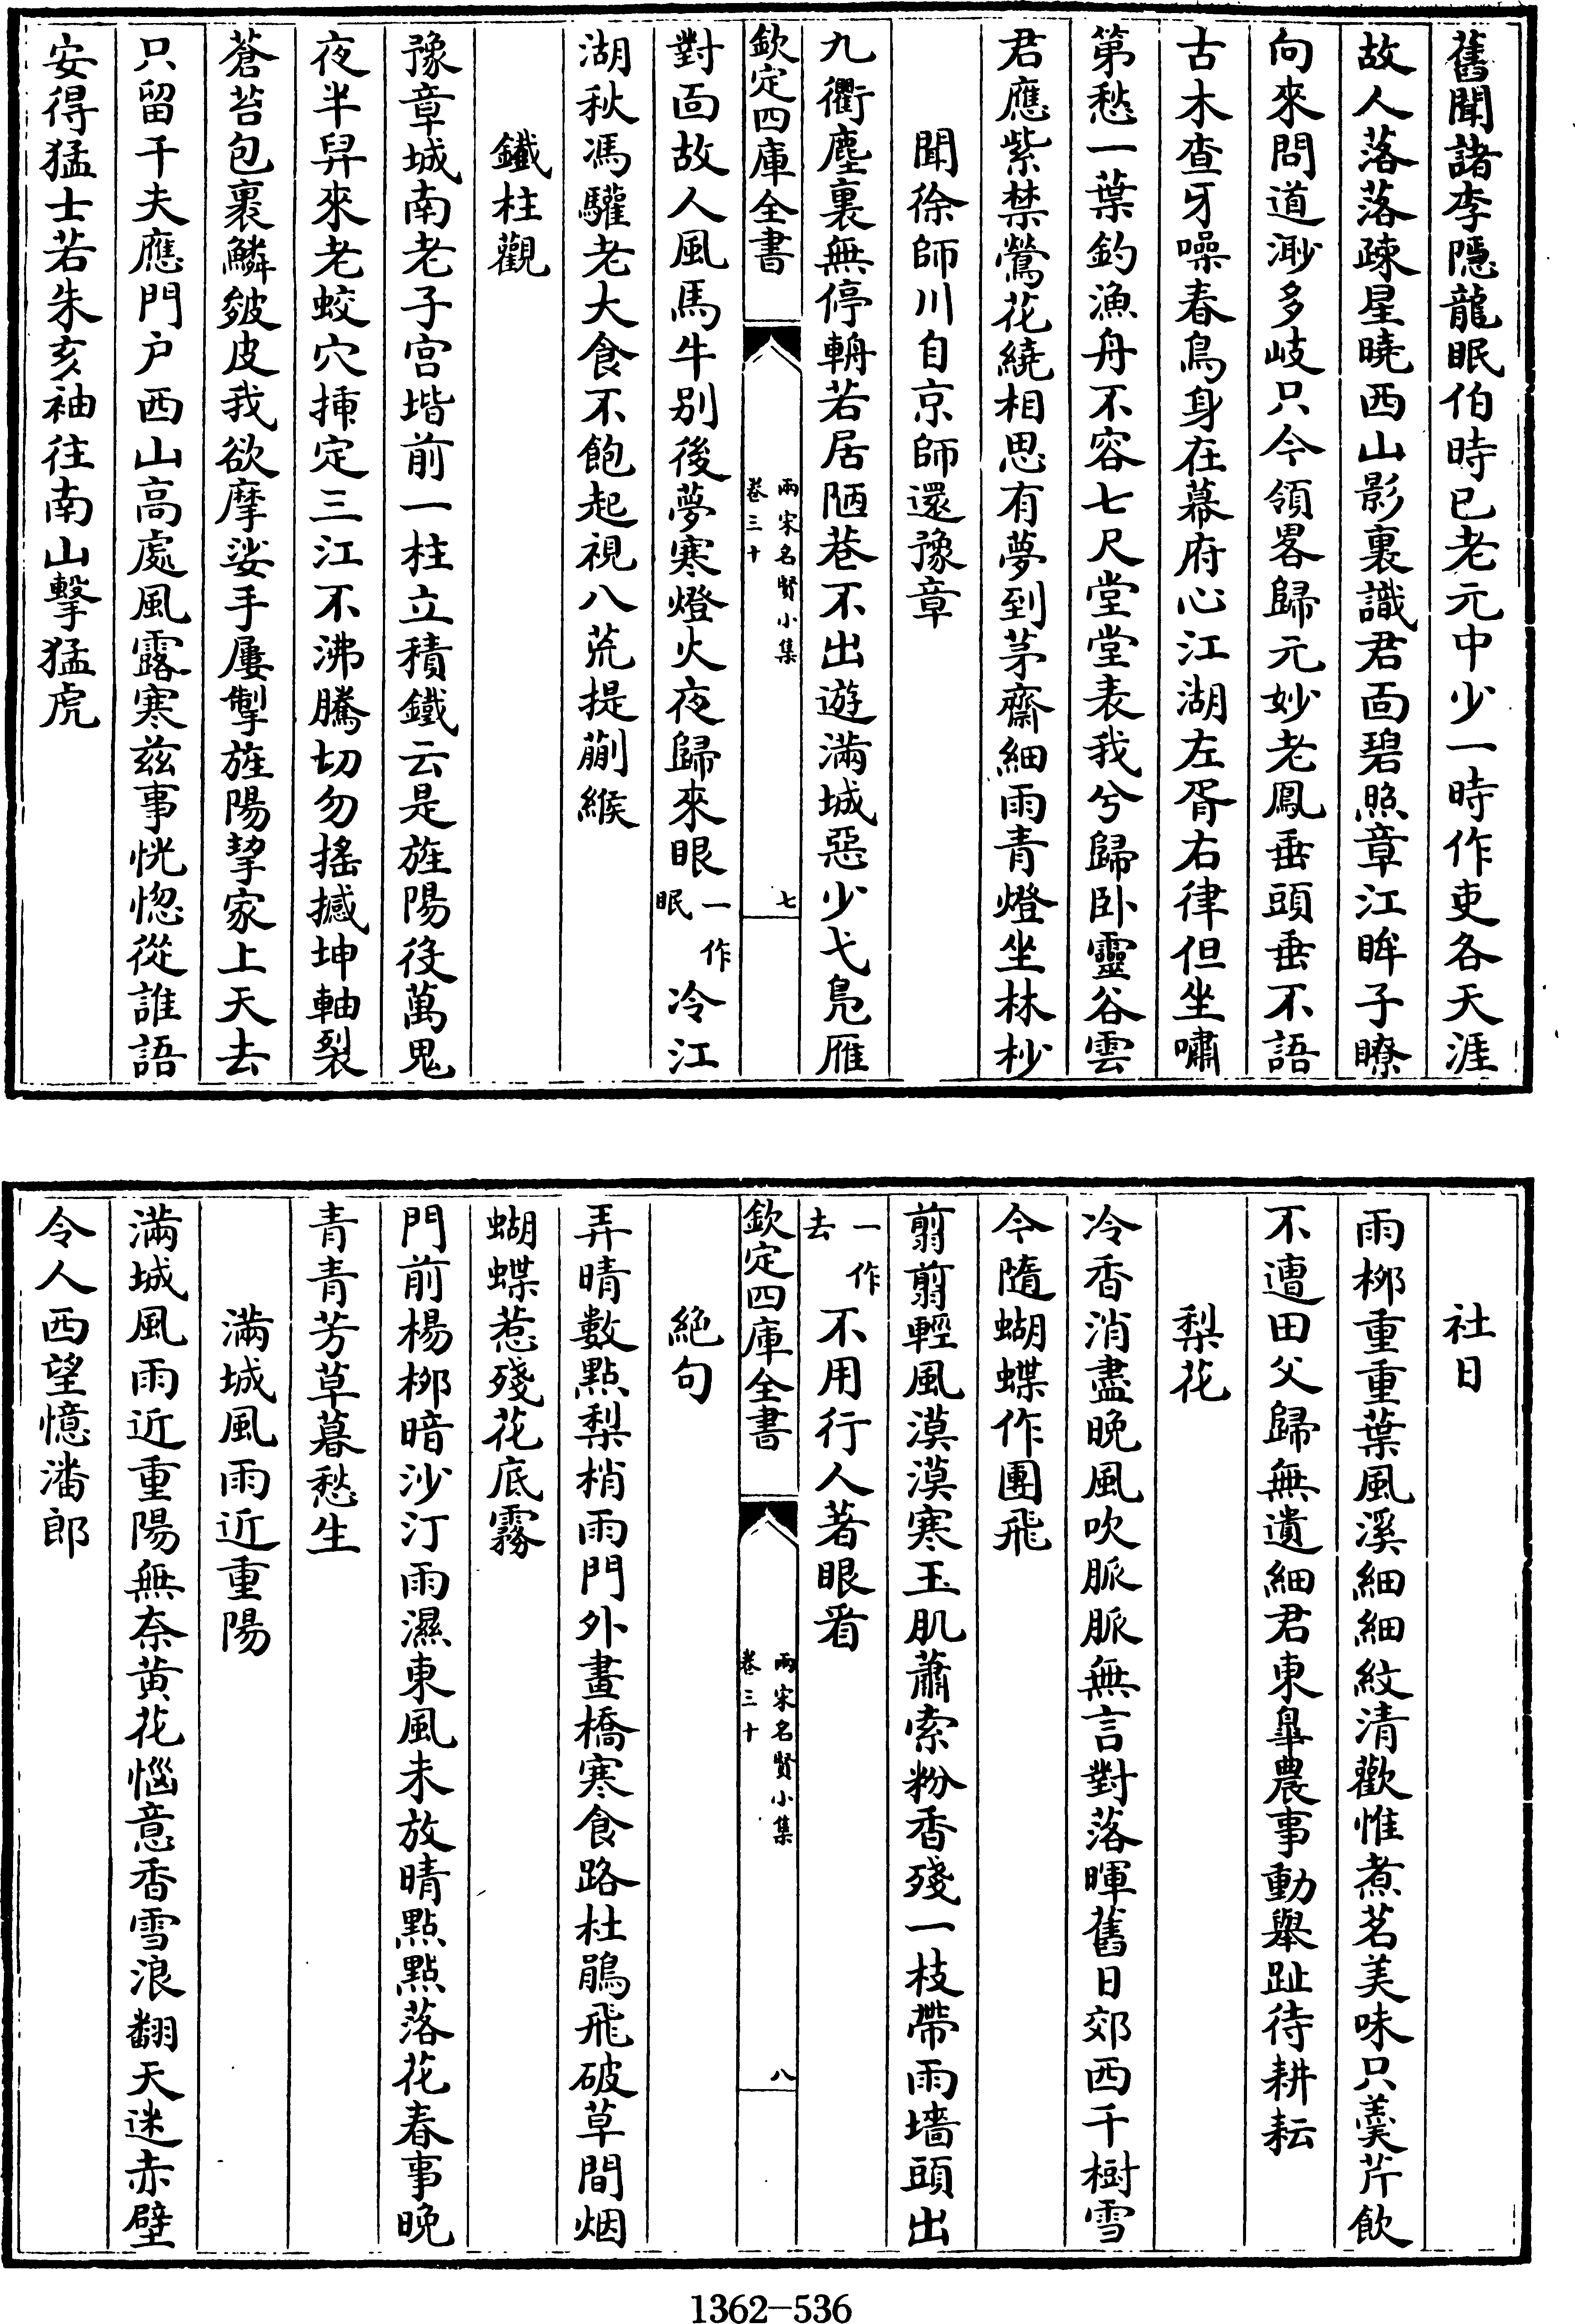 舊聞諸李隱龍眠伯時已老元中少一時作吏各天涯
故人落落疎星曉西山影裏識君面碧照章江眸子瞭
向來問道渺多岐只今領畧歸元妙老鳳垂頭垂不語
古木查牙噪春鳥身在幕府心江湖左胥右律但坐嘯
第愁一葉釣漁舟不容七尺堂堂表我兮歸卧靈谷雲
君應紫禁鶯花繞相思有夢到茅齋細雨青燈坐林杪
聞徐師川自京師還豫章
九衢塵裏無停輈若居陋巷不出遊滿城惡少弋鳬雁
欽定四庫全書
兩宋名賢小集
卷三十
七
對面故人風馬牛别後夢寒燈火夜歸來眼一作眠冷江
湖秋馮驩老大食不飽起視八荒提蒯緱
鐵柱觀
豫章城南老子宫堦前一柱立積鐵云是旌陽役萬鬼
夜半舁來老蛟穴揷定三江不沸騰切勿摇撼坤軸裂
蒼苔包裹鱗皴皮我欲摩挲手屢掣旌陽挈家上天去
只留千夫應門户西山高處風露寒兹事恍惚從誰語
安得猛士若朱亥袖往南山擊猛虎
社日
雨桞重重葉風溪細細紋清歡惟煮茗美味只羮芹飲
不遭田父歸無遺細君東臯農事動舉趾待耕耘
梨花
冷香消盡晚風吹脈脈無言對落暉舊日郊西千樹雪
今隨蝴蝶作團飛
翦翦輕風漠漠寒玉肌蕭索粉香殘一枝帶雨墻頭出
一作去不用行人著眼看
欽定四庫全書
兩宋名賢小集
卷三十
八
絶句
弄晴數點梨梢雨門外畫橋寒食路杜鵑飛破草間烟
蝴蝶惹殘花底霧
門前楊桞暗沙汀雨濕東風未放晴點點落花春事晚
青青芳草暮愁生
滿城風雨近重陽
滿城風雨近重陽無奈黄花惱意香雪浪翻天迷赤壁
令人西望憶潘郎
1362-536